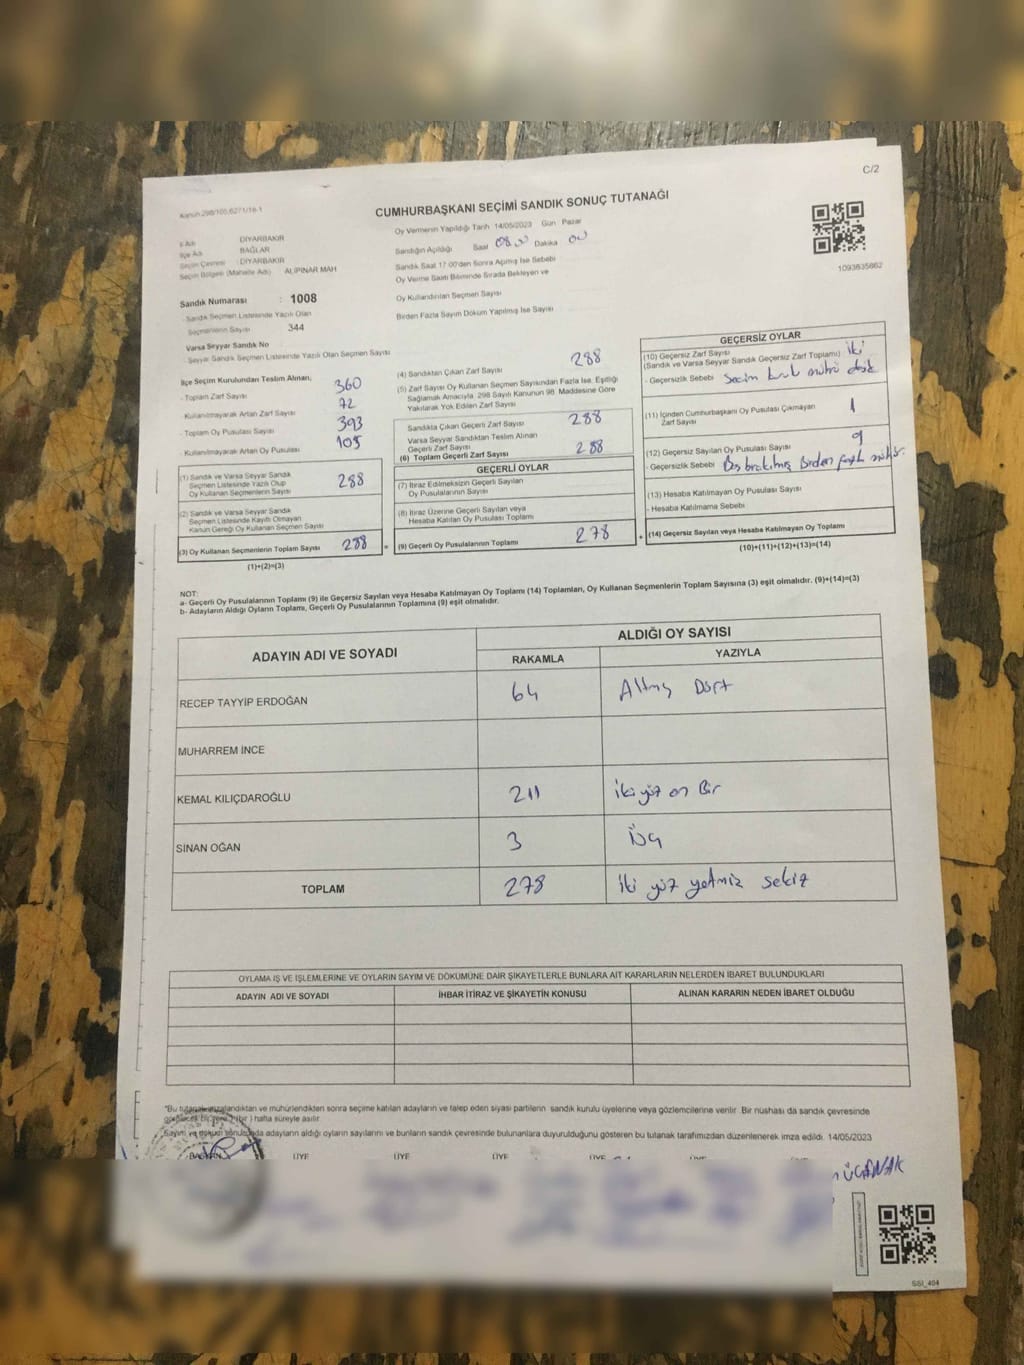 C/2
Kanun 298/105,6271/16-1
CUMHURBAŞKANI SEÇİMİ SANDIK SONUÇ TUTANAĞI
İl Adı DİYARBAKIR
İlçe Adı BAĞLAR
Seçim Çevresi : DİYARBAKIR
Seçim Bölgesi (Mahalle Adı) ALİPINAR MAH
Sandık Numarası : 1008
- Sandık Seçmen Listesinde Yazılı Olan
Seçmenlerin Sayısı 344
Varsa Seyyar Sandık No
- Seyyar Sandık Seçmen Listesinde Yazılı Olan Seçmen Sayısı
Oy Vermenin Yapıldığı Tarih 14/05/2023 Gün : Pazar
Sandığın Açıldığı Saat 08.00 Dakika 00
Sandık Saat 17.00'den Sonra Açılmış İse Sebebi
Oy Verme Saati Bitiminde Sırada Bekleyen ve
Oy Kullandırılan Seçmen Sayısı
Birden Fazla Sayım Döküm Yapılmış İse Sayısı
1093835862
İlçe Seçim Kurulundan Teslim Alınan;
- Toplam Zarf Sayısı 360
- Kullanılmayarak Artan Zarf Sayısı 72
- Toplam Oy Pusulası Sayısı 393
- Kullanılmayarak Artan Oy Pusulası 105
(1) Sandık ve Varsa Seyyar Sandık
Seçmen Listesinde Yazılı Olup
Oy Kullanan Seçmenlerin Sayısı 288
(2) Sandık ve Varsa Seyyar Sandık
Seçmen Listesinde Kayıtlı Olmayan
Kanun Gereği Oy Kullanan Seçmen Sayısı
(3) Oy Kullanan Seçmenlerin Toplam Sayısı 288
(1)+(2)=(3)
(4) Sandıktan Çıkan Zarf Sayısı 288
(5) Zarf Sayısı Oy Kullanan Seçmen Sayısından Fazla İse, Eşitliği
Sağlamak Amacıyla, 298 Sayılı Kanunun 98. Maddesine Göre
Yakılarak Yok Edilen Zarf Sayısı
Sandıkta Çıkan Geçerli Zarf Sayısı 288
Varsa Seyyar Sandıktan Teslim Alınan
Geçerli Zarf Sayısı
(6) Toplam Geçerli Zarf Sayısı 288
GEÇERLİ OYLAR
(7) İtiraz Edilmeksizin Geçerli Sayılan
Oy Pusulalarının Sayısı
(8) İtiraz Üzerine Geçerli Sayılan veya
Hesaba Katılan Oy Pusulası Toplamı
= (9) Geçerli Oy Pusulalarının Toplamı 278
GEÇERSİZ OYLAR
(10) Geçersiz Zarf Sayısı
(Sandık ve Varsa Seyyar Sandık Geçersiz Zarf Toplamı) iki
- Geçersizlik Sebebi Seçim kurul mührü
(11) İçinden Cumhurbaşkanı Oy Pusulası Çıkmayan
Zarf Sayısı 1
(12) Geçersiz Sayılan Oy Pusulası Sayısı 9
- Geçersizlik Sebebi Boş bırakılmış Birden fazla mühür.
(13) Hesaba Katılmayan Oy Pusulası Sayısı
- Hesaba Katılmama Sebebi
+ (14) Geçersiz Sayılan veya Hesaba Katılmayan Oy Toplamı
(10)+(11)+(12)+(13)=(14)
NOT:
a- Geçerli Oy Pusulalarının Toplamı (9) ile Geçersiz Sayılan veya Hesaba Katılmayan Oy Toplamı (14) Toplamları, Oy Kullanan Seçmenlerin Toplam Sayısına (3) eşit olmalıdır. (9)+(14)=(3)
b- Adayların Aldığı Oyların Toplamı, Geçerli Oy Pusulalarının Toplamına (9) eşit olmalıdır.
ADAYIN ADI VE SOYADI
ALDIĞI OY SAYISI
RAKAMLA YAZIYLA
RECEP TAYYIP ERDOĞAN 64 Altmış Dört
MUHARREM İNCE
KEMAL KILIÇDAROĞLU 211 iki yüz on Bir
SİNAN OĞAN 3 üç
TOPLAM 278 iki yüz yetmiz sekiz
OYLAMA İŞ VE İŞLEMLERİNE VE OYLARIN SAYIM VE DÖKÜMÜNE DAİR ŞİKAYETLERLE BUNLARA AİT KARARLARIN NELERDEN İBARET BULUNDUKLARI
ADAYIN ADI VE SOYADI İHBAR İTİRAZ VE ŞİKAYETİN KONUSU ALINAN KARARIN NEDEN İBARET OLDUĞU
*Bu tutanak imzalandıktan ve mühürlendikten sonra seçime katılan adayların ve talep eden siyasi partilerin sandık kurulu üyelerine veya gözlemcilerine verilir. Bir nüshası da sandık çevresinde
görülecek bir yere 1 (bir ) hafta süreyle asılır.
Sayım ve döküm sonucunda adayların aldığı oyların sayılarını ve bunların sandık çevresinde bulunanlara duyurulduğunu gösteren bu tutanak tarafımızdan düzenlenerek imza edildi. 14/05/2023
BAŞKAN ÜYE ÜYE ÜYE ÜYE
SSİ_404